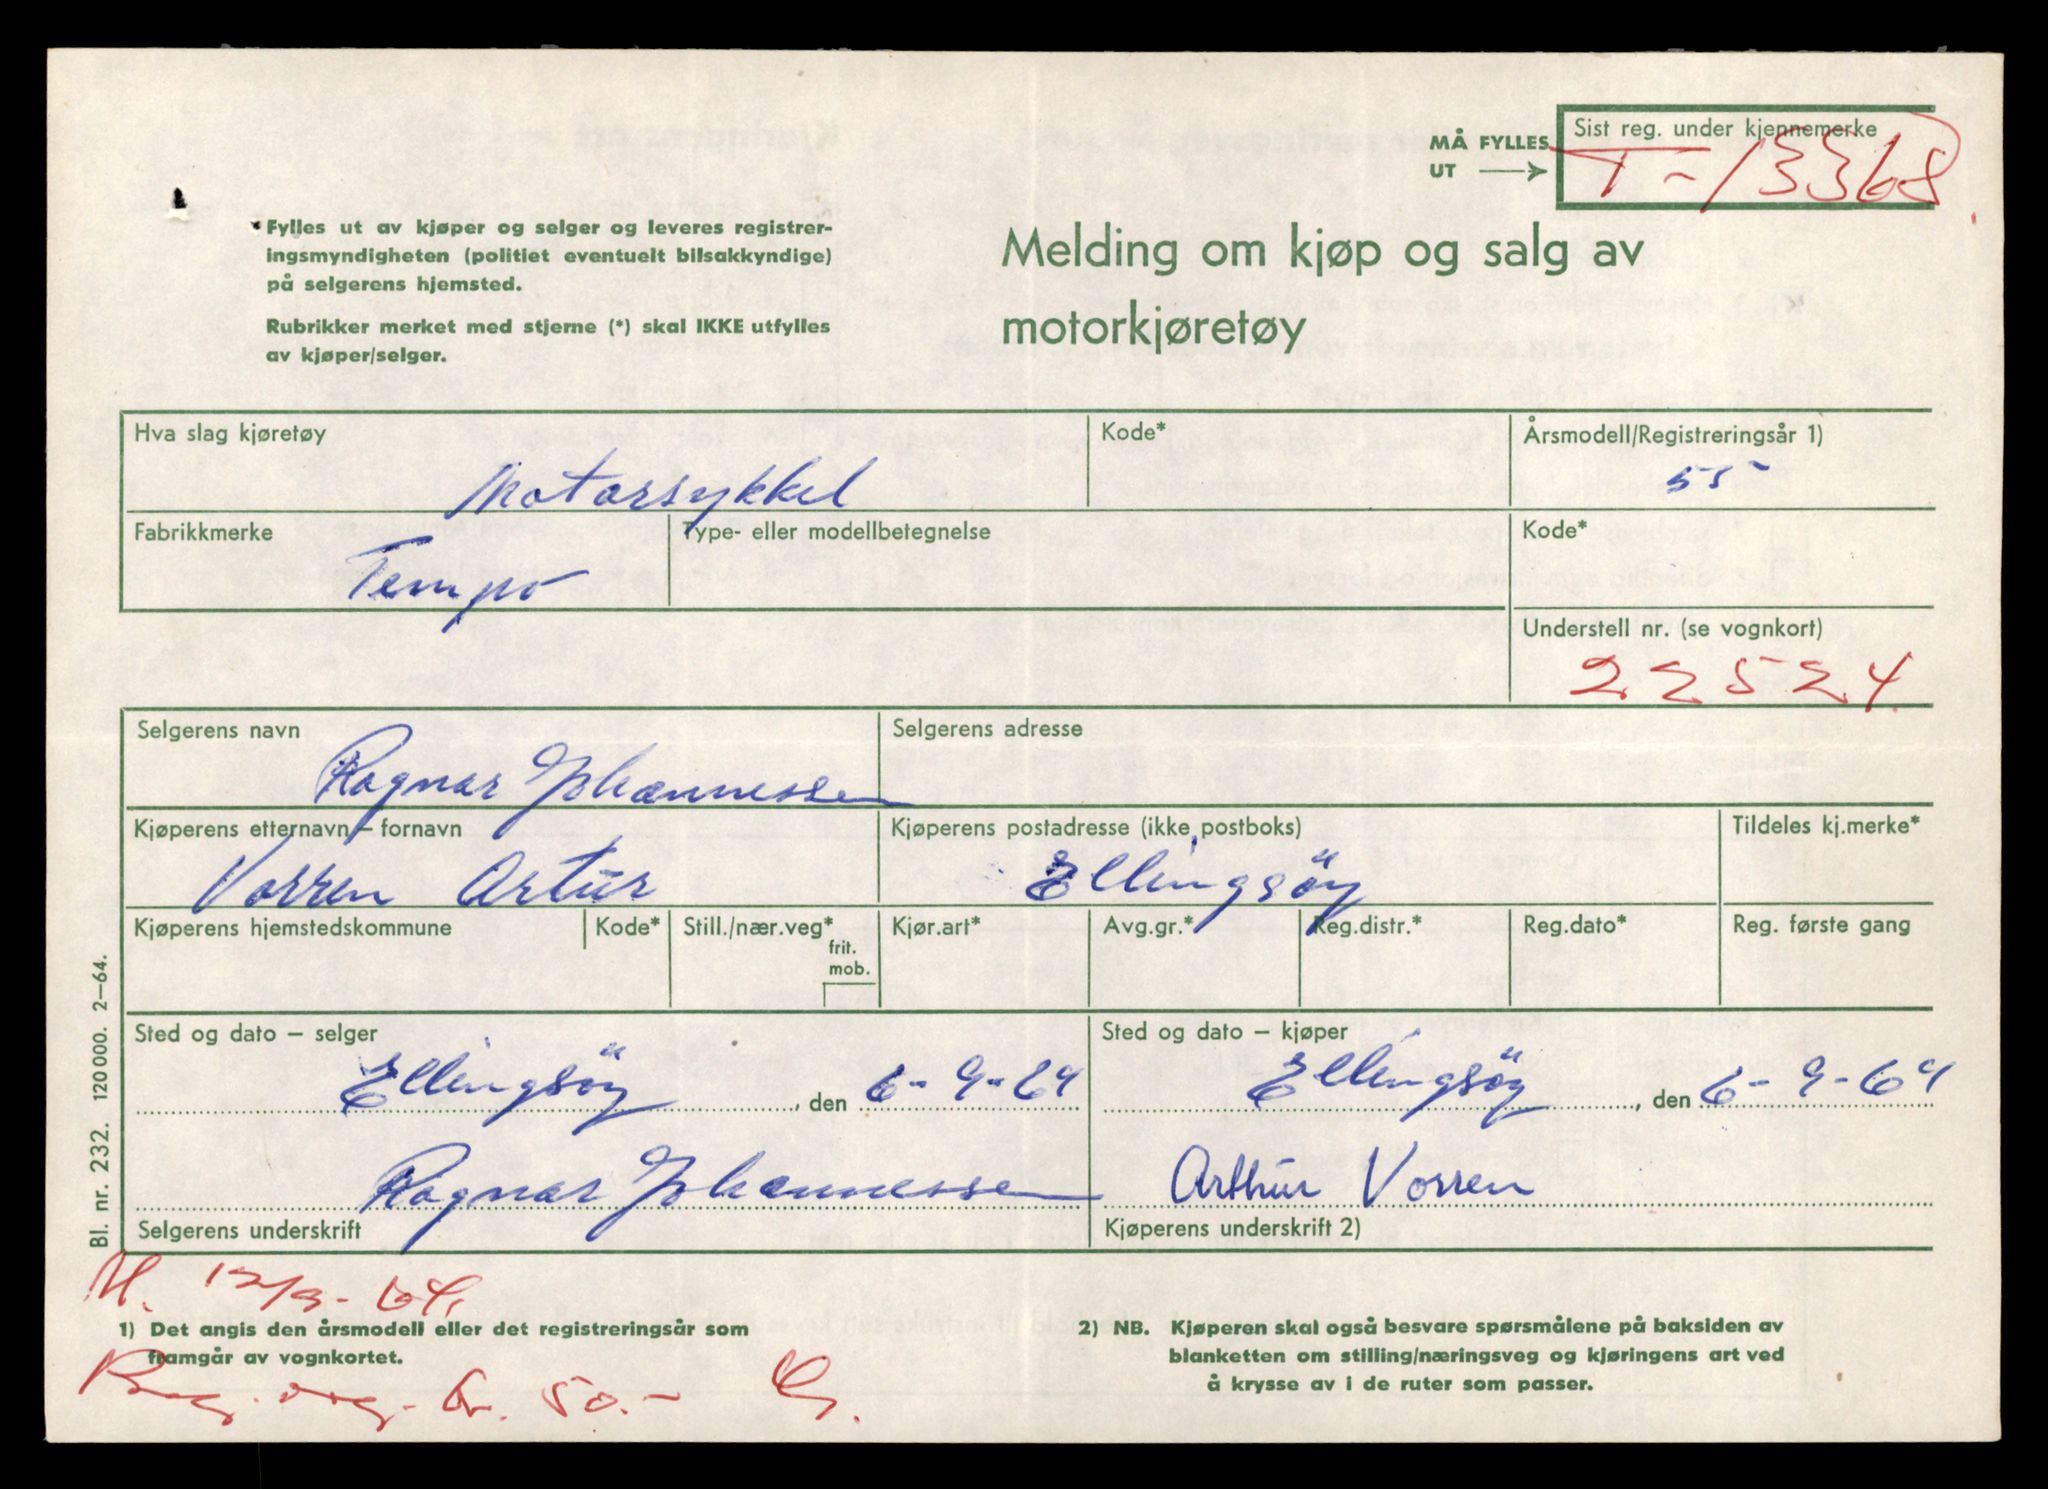 MÅ FYLLES UT
Sist reg. under kjennemerke
T-13368
Fylles ut av kjøper og selger og leveres registrer-
ingsmyndigheten (politiet eventuelt bilsakkyndige)
på selgerens hjemsted.
Rubrikker merket med stjerne (*) skal IKKE utfylles
av kjøper/selger.
Melding om kjøp og salg av
motorkjøretøy
Hva slag kjøretøy
Kode*
Årsmodell/Registreringsår 1)
Motorsykkel
55
Fabrikkmerke
Type- eller modellbetegnelse
Kode*
Tempo
Understell nr. (se vognkort)
22524
Selgerens navn
Selgerens adresse
Ragnar Johannessen
Kjøperens etternavn – fornavn
Kjøperens postadresse (ikke postboks)
Tildeles kj.merke*
Vorren Artur
Ellingsöy
Kjøperens hjemstedskommune
Kode*
Still./nær.veg*
frit.
mob.
Kjør.art*
Avg.gr.*
Reg.distr.*
Reg.dato*
Reg. første gang
Sted og dato – selger
Sted og dato – kjøper
Ellingsöy, den 6-9-64
Ellingsöy, den 6-9-64
Ragnar Johannessen
Arthur Vorren
Selgerens underskrift
Kjøperens underskrift 2)
Bl. nr. 232. 120 000. 2–64.
12/9-64.
1) Det angis den årsmodell eller det registreringsår som
framgår av vognkortet.
2) NB. Kjøperen skal også besvare spørsmålene på baksiden av
blanketten om stilling/næringsveg og kjøringens art ved
å krysse av i de ruter som passer.
Reg. avg. kr. 50.-